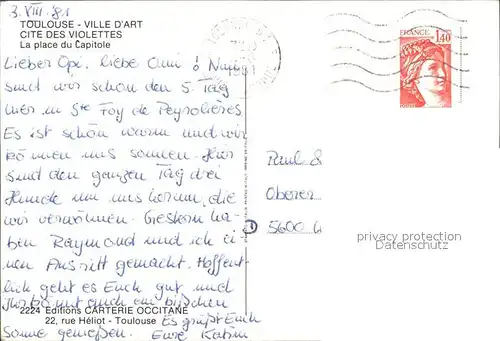 3. VIII. 81
TOULOUSE - VILLE D'ART
CITE DES VIOLETTES
La place du Capitole
FRANCE
1,40
Lieber Opi, liebe Omi! Nun
sind wir schon den 5. Tag
hier in Ste Foy de Peyrolières.
Es ist schön warm und wir
können uns sonnen. Hier
sind den ganzen Tag drei
Hunde um uns herum, die
wir verwöhnen. Gestern ha-
ben Raymond und ich ei-
nen Ausritt gemacht. Hoffent-
lich geht es Euch gut und
Ihr könnt auch ein bißchen
Sonne genießen.
Es grüßt Euch
Eure Katrin
Paul &
Oberer
5600
privacy protection
Datenschutz
2224 Editions CARTERIE OCCITANE
22, rue Héliot - Toulouse